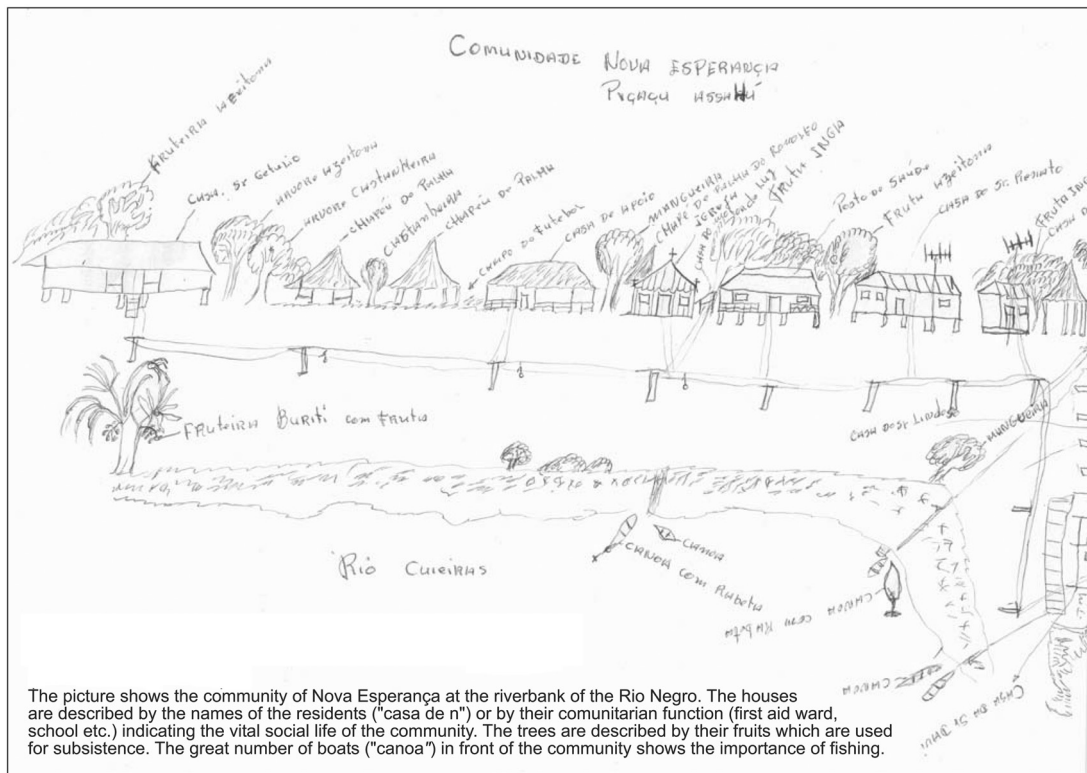 COMUNIDADE NOVA ESPERANÇA
FRUTEIRA AZEITONA
CASA. Sr Getulio
ARVORE AZEITONA
ARVORE CASTANHEIRA
CHAPÉU DE PALHA
CHAPÉU DE PALHA
CAMPO DO FUTEBOL
CASA DE APOIO
MANGUEIRA
CHAPE DE PALHA DO RODOLFO
IGREJA
FRUTA INGA
Posto de SAÚDE
FRUTA AZEITONA
CASA DO Sr.
FRUTA
CASA
FRUTEIRA BURITI COM FRUTA
CASA DO Sr
MANGUEIRA
RIO CUIEIRAS
CANOA
CANOA COM RABETA
CANOA COM RABETA
CANOA
CASA DA Sr DAVI
The picture shows the community of Nova Esperança at the riverbank of the Rio Negro. The houses
are described by the names of the residents ("casa de n") or by their comunitarian function (first aid ward,
school etc.) indicating the vital social life of the community. The trees are described by their fruits which are used
for subsistence. The great number of boats ("canoa") in front of the community shows the importance of fishing.